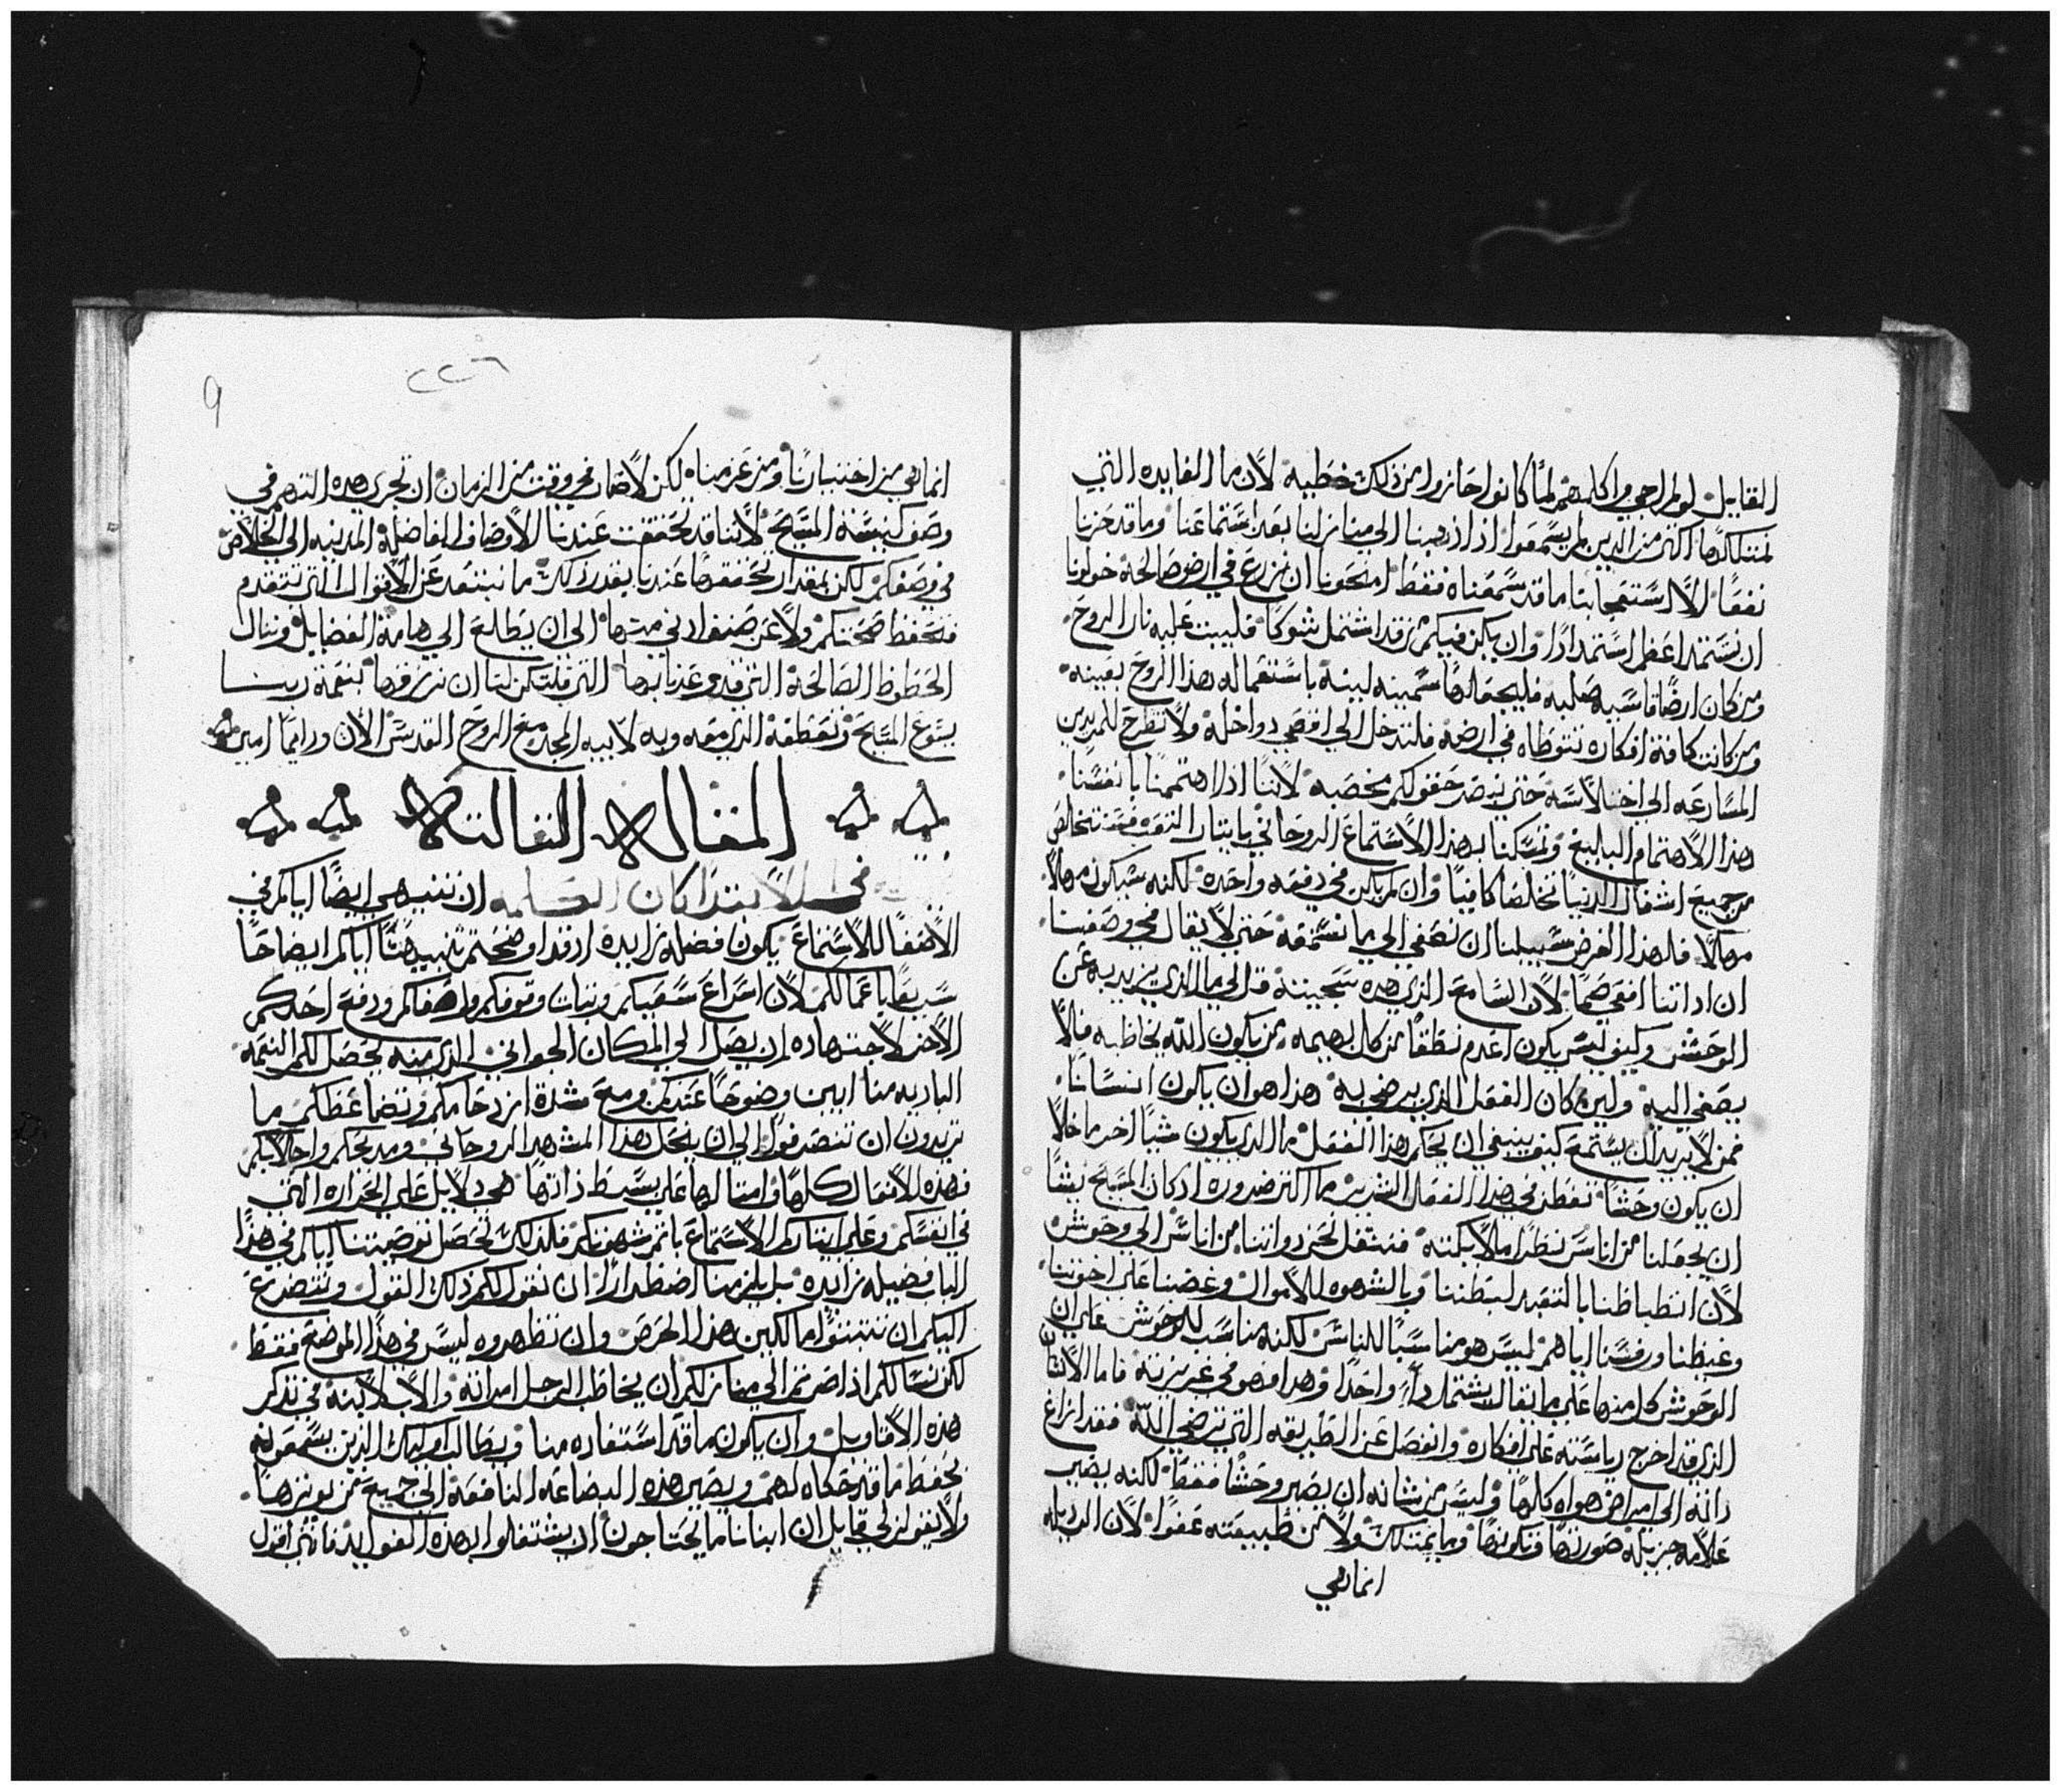 القايل لو لم اجي واكلمهم لما كانوا حازوا من ذلك خطيه لان ما الفايده التي
نمتلكها اكثر من الذين لم يسمعوا اذا ذهبنا الى منازلنا بعد استماعنا وما قد حزنا
نفعًا الا استعجابنا ما قد سمعناه فقط امنحونا ان نزرع في ارض صالحة خولونا
ان نستمد اعظم استمدادًا وان يكن فيكم من قد اشتمل شوكا فليبت عليه نار الروح
ومن كان ارضًا قاسيه صلبه فليجعلها سمينه لينة باستعماله هذا الروح بعينه
ومن كانت كافة افكاره تتوطاه في ارضه فلندخل الي اقصي دواخله ولا نطرح للمريدين
المسارعه الى اختلاسه حتى نبصر حقولكم مخصبه لاننا اذا اهتممنا بانفسنا
هذا الاهتمام البليغ وتمسكنا بهذا الاستماع الروحاني بايثار التعب فسنتخالص
من جميع اشغال الدنيا تخلصًا كافيًا وان لم يكن في دفعه واحده لكنه سيكون مهلاً
مهلاً فلهذا الغرض سبيلنا ان نصغي الى ما نسمعه حتى لا يقال في وصفنا
ان اذاننا افعي صما لان السامع الذي هذه سجيته قل لي ما الذي يزيد به عن
الوحش وكيف ليس يكون اعدم نطقا من كل بهيمه من يكون الله يخاطبه فلا
يصغي اليه ولين كان الفعل الذي يرضي به هذا هو ان يكون انسانا
فمن لا يريد ان يستمع كيف ينبغي ان يحكم هذا الفعل ما الذي يكون شيا اخر ما خلا
ان يكون وحشا تفطن في هذا الفعل الشديد ما اكثر ضرره اذ كان المسيح يشا
ان يجعلنا من اناس نظراء ملايكته فننتقل نحن ذواتنا من اناس الى وحوش
لان انطباطنا بالتعبد لبطننا وبالشهوه للاموال وغضبنا على اخوتنا
وغيظنا ورفسنا اياهم ليس هو مناسبًا للناس لكنه مناسب للوحوش على ان
الوحوش كل منها على ما يقال يشتمل داء واحدًا وهذا فهو في غريزته فاما الانسان
الذي قد اخرج رياسته على افكاره وانفصل عن الطريقه التي ترضي الله فقد ازاغ
ذاته الى امراض هواه كلها وليس من شانه ان يصير وحشًا فقط لكنه يصير
علامه جزيله صورتها وتكونها وما يمتلك ولا من طبيعته عفوا لان الرذيله
انما هي
٢٢٦
9
انما هي من اختيارنا ومن عزمنا لكن لا صار في وقت من الزمان ان تجري هذه التهم في
وصف كنيسة المسيح لاننا قد تحققت عندنا الاوصاف الفاضلة المدنيه الى الخلاص
في وصفكم لكن بمقدار تحققها عندنا بقدر ذلك ما نبتعد عن الاقوال التي تتقدم
فتحفظ صحتكم ولا عن صنف ادني منها الى ان يطلع الي هامة الفضايل وننال
الحظوظ الصالحة التي قد وعدنا بها التي فلتكن لنا ان نرزقها بنعمة ربنا
يسوع المسيح وتعطفه الذي معه وبه لابيه المجد مع الروح القدس الان ودايمًا امين
المقاله الثالثه
في الابتدا كان الكلمه ان تنبيهي ايضًا اياكم في
الاصغا للاستماع يكون فضله زايده اذ قد اوضحتم تنبيهنا اياكم ايضاحا
سريعا باعمالكم لان اسراع سعيكم وثبات وقوفكم واصغاكم ودفع احدكم
الاخر لاجتهاده ان يصل الى المكان الجواني الذي منه يحصل لكم النغمه
الباديه منا ابين وضوحا عندكم ومع شدة ازدحامكم وتضاغطكم ما
تريدون ان تنصرفوا الى ان ينحل هذا المشهد الروحاني ومديحكم واجلالكم
فهذه الافعال كلها وامثالها على بسيط ذاتها هي دلايل على الحراره التي
في انفسكم وعلى ايثاركم الاستماع باتم شهوتكم فلذلك تحصل توصيتنا اياكم في هذا
الباب فضيله زايده بل يلزمنا اضطرارًا ان نقول لكم ذلك القول ونتضرع
اليكم ان تثبتوا مالكين هذا الحرص وان تظهروه ليس في هذا الموضع فقط
لكن نسالكم اذا صرتم الى منازلكم ان يخاطب الرجل امراته والاب لابنه في تذكر
هذه الاقاويل وان يكون ما قد استفاده منا ويطالب اوليك الذين يسمعونه
بحفظ ما قد حكاه لهم ويصير هذه البضاعه النافعة الى جميع من يوثرها
ولا يقولن لي قايل ان ابنانا ما يحتاجون ان يشتغلوا بهذه الفوايد فانني اقول